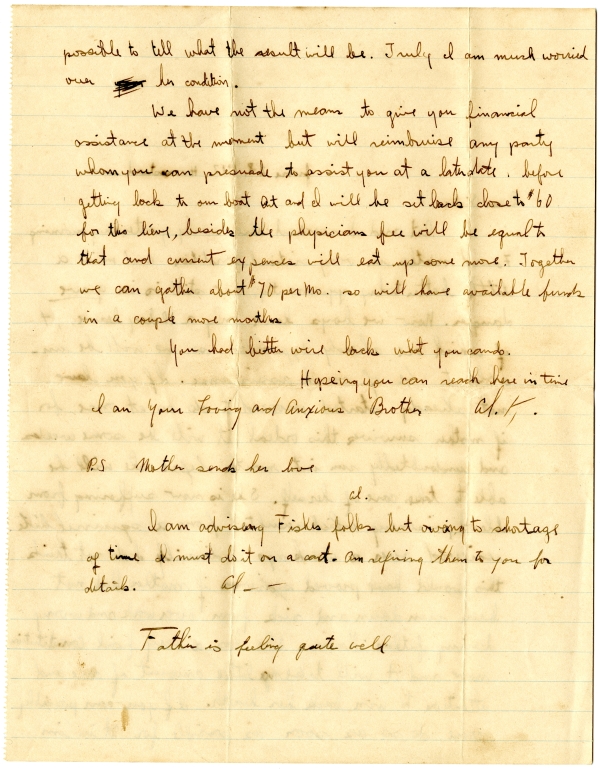 possible to tell what the result will be. Truly I am much worried
over her condition.
We have not the means to give you financial
assistance at the moment but will reimburise any party
whom you can presuade to assist you at a later date. before
getting back to our boat and I will be set back close to $60
for this time, besides the physicians fee will be equal to
that and current expences will eat up some more. Together
we can gather about $70 per Mo. so will have available funds
in a couple more months
You had better wire back what you can do.
Hopeing you can reach here in time
I am Your Loving and Anxious Brother Al. K.
P.S Mother sends her love
al.
I am advising Fiskes folks but owing to shortage
of time I must do it on a cart. Am refiring them to you for
details. Al - -
Father is feeling quite well